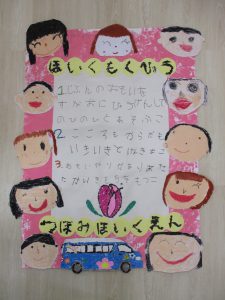 ほいくもくひょう
1じぶんのおもいを
すなおにひょうげんし
のびのびとあそぶこ
2こころもからだも
いきいきと
3おもいやりがありあた
たかいきもちをもつこ
つぼみほいくえん